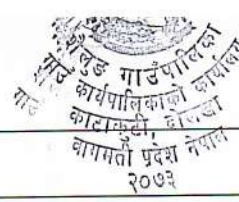 गैलुङ गाउँपालिका
गाउँ कार्यपालिकाको कार्यालय
काटाकुटी, दोलखा
बागमती प्रदेश नेपाल
२०७३